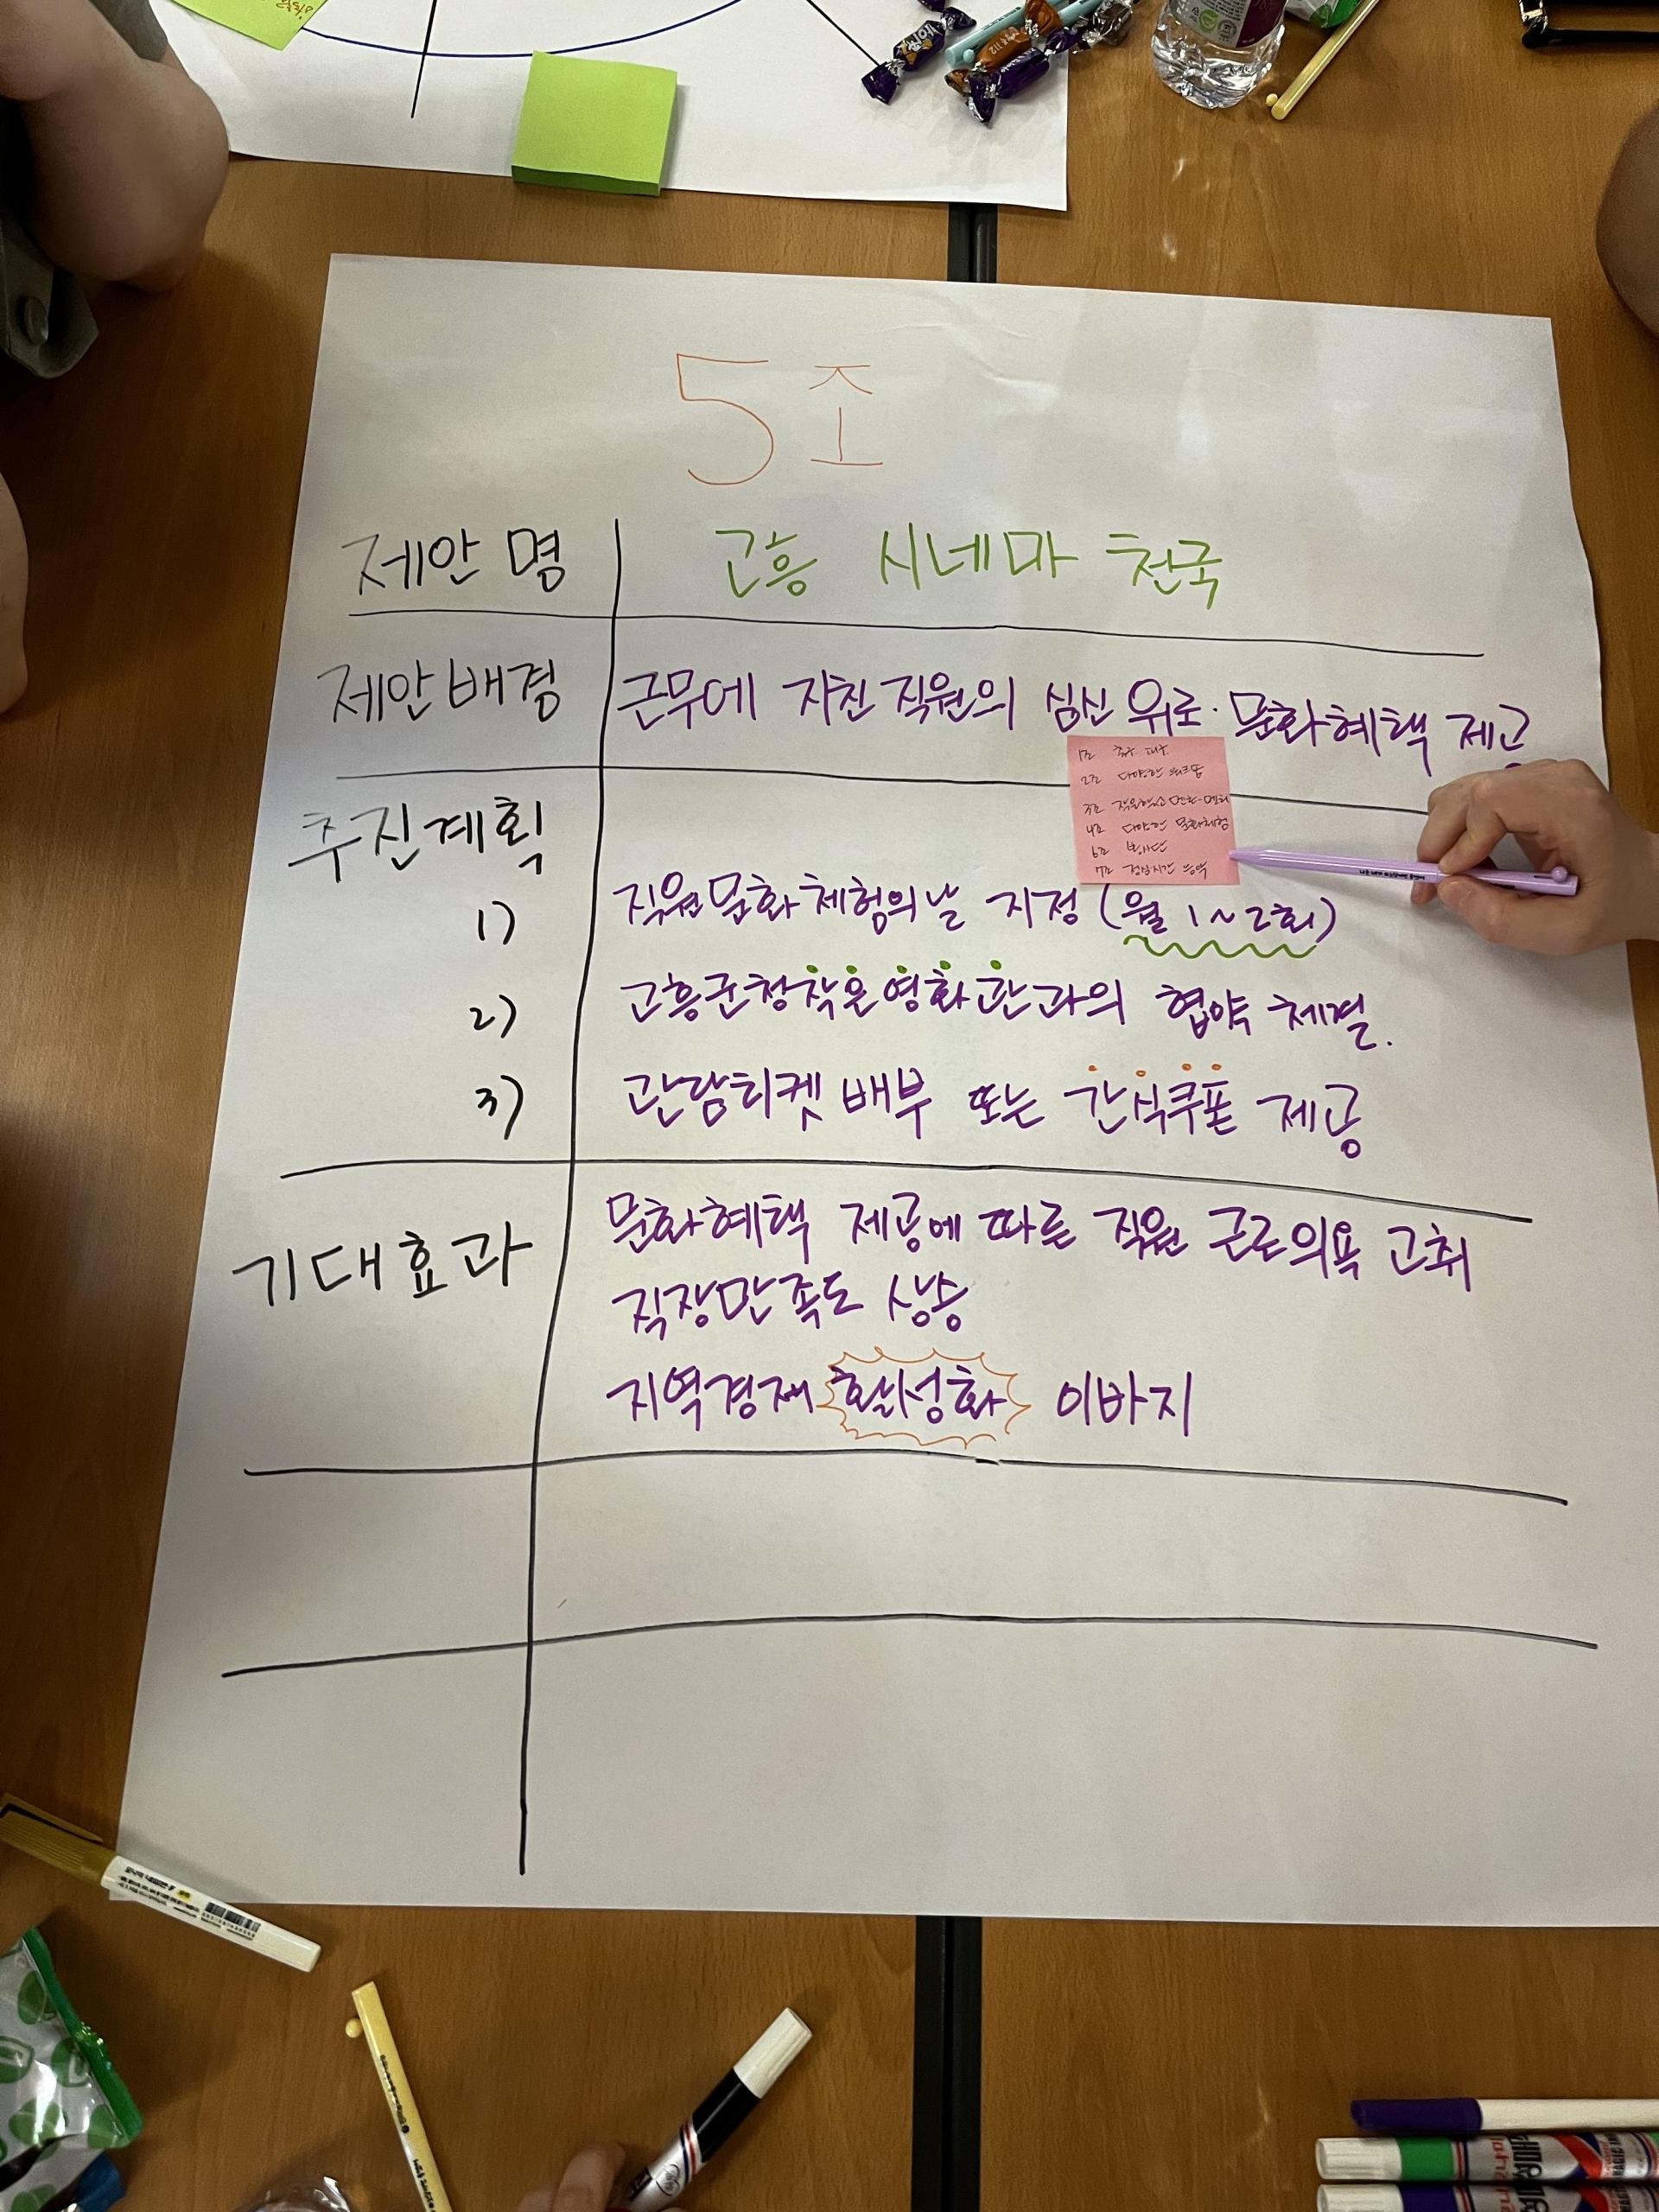 5조
제안명 고흥 시네마 천국
제안배경 근무에 지친 직원의 심신 위로·문화혜택 제공
추진계획
1) 직원문화체험의날 지정 (월 1~2회)
2) 고흥군청작은영화관과의 협약 체결.
3) 관람티켓 배부 또는 간식쿠폰 제공
기대효과 문화혜택 제공에 따른 직원 근로의욕 고취
직장만족도 상승
지역경제 활성화 이바지
1조
2조 다양한 워크숍
3조
4조 다양한 문화체험
6조 봉사단
7조 점심시간 음악